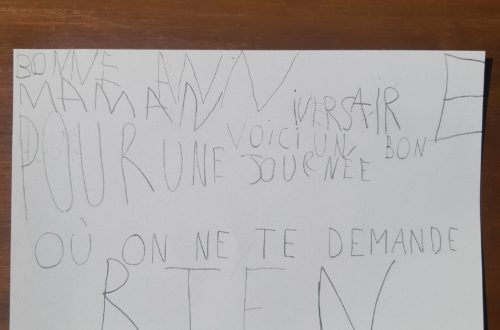 BONNE ANNIVERSAIRE
MAMAN
VOICI UN BON
POUR UNE JOURNÉE
OÙ ON NE TE DEMANDE
RIEN